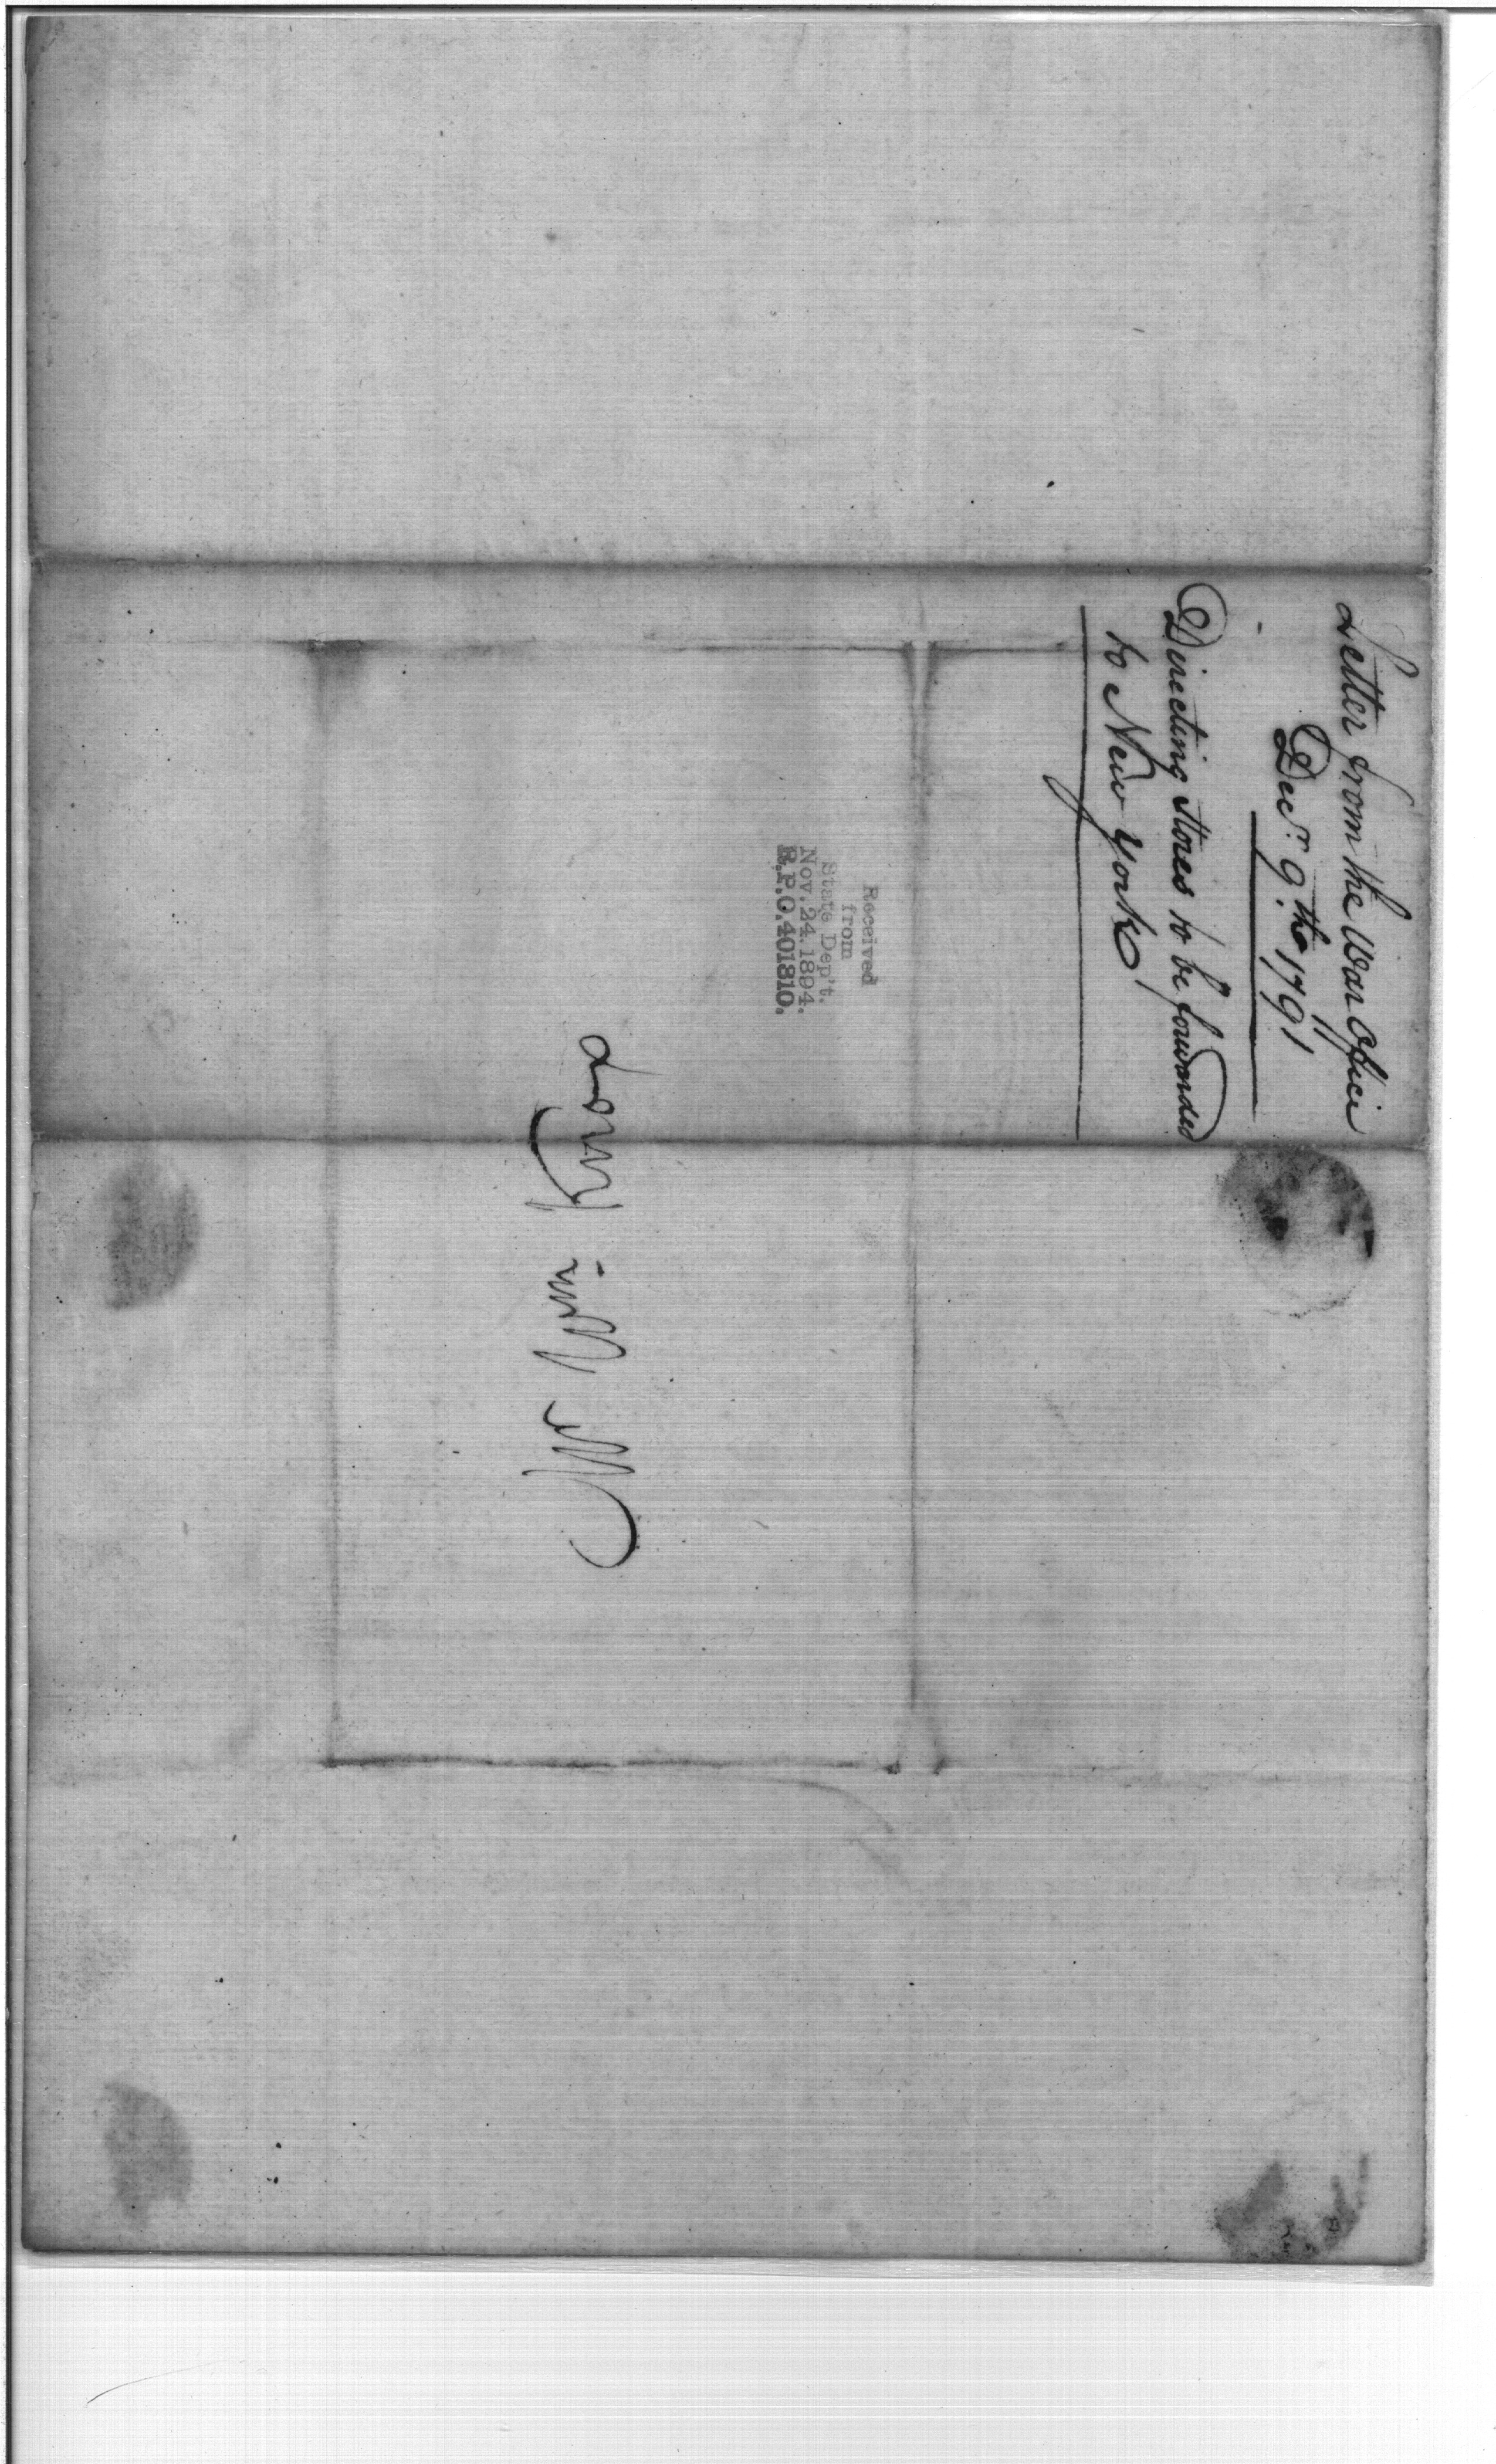 Letter from the War Office
Decr. 9th 1791
Directing Stores to be forwarded
to New York
Received
from
State Dep't.
Nov. 24. 1894.
R.P.O. 401810.
Mr Wm Knox